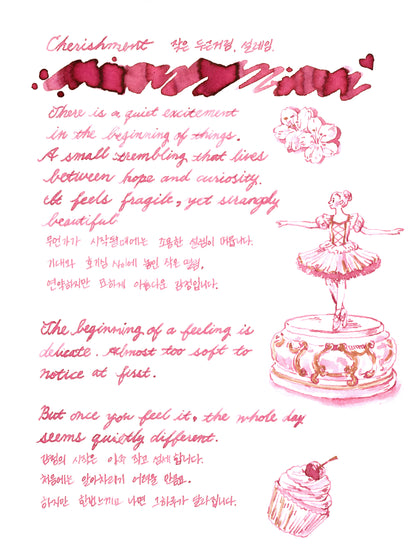 Cherishment 작은 두근거림, 설레임.
There is a quiet excitement
in the beginning of things.
A small trembling that lives
between hope and curiosity.
It feels fragile, yet strangly
beautiful
무언가가 시작될때에는 조용한 설렘이 머뭅니다.
기대와 호기심 사이에 놓인 작은 떨림.
연약하지만 묘하게 아름다운 감정입니다.
The beginning of a feeling is
delicate. Almost too soft to
notice at first.
But once you feel it, the whole day
seems quietly different.
감정의 시작은 아주 작고 섬세합니다.
처음에는 알아차리기 어려울 만큼.
하지만 한번 느끼고 나면 그 하루가 달라집니다.